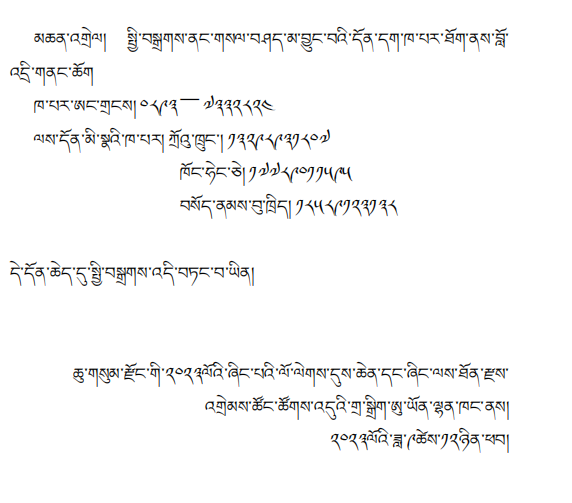 མཆན་འགྲེལ། སྤྱི་བསྒྲགས་ནང་གསལ་བཤད་མ་བྱུང་བའི་དོན་དག་ཁ་པར་ཐོག་ནས་བློ་
འདྲི་གནང་ཆོག
ཁ་པར་ཨང་གྲངས། ༠༨༩༣ — ༧༣༣༢༨༢༤
ལས་དོན་མི་སྣའི་ཁ་པར། ཀྲོའུ་ཁྲུང་། ༡༣༢༩༨༩༣༡༨༠༧
ཁོང་ཧེང་ཅེ། ༡༧༧༨༩༠༡༡༥༩༥
བསོད་ནམས་བུ་ཁྲིད། ༡༨༥༨༩༡༢༣༡༣༨
དེ་དོན་ཆེད་དུ་སྤྱི་བསྒྲགས་འདི་བཏང་བ་ཡིན།
ཆུ་གསུམ་རྫོང་གི་༢༠༢༣ལོའི་ཞིང་པའི་ལོ་ལེགས་དུས་ཆེན་དང་ཞིང་ལས་ཐོན་རྫས་
འགྲེམས་ཚོང་ཚོགས་འདུའི་གྲ་སྒྲིག་ཨུ་ཡོན་ལྷན་ཁང་ནས།
༢༠༢༣ལོའི་ཟླ་༩ཚེས་༡༢ཉིན་ཕབ།